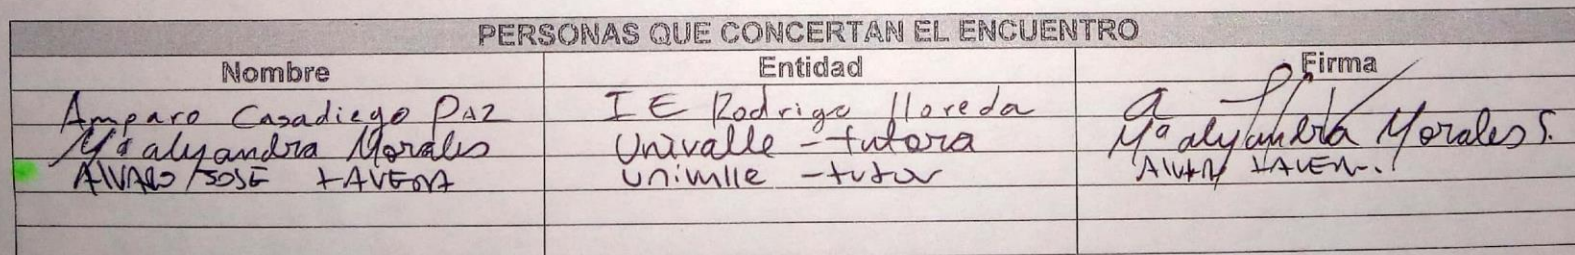 PERSONAS QUE CONCERTAN EL ENCUENTRO
Nombre Entidad Firma
Amparo Casadiego PAZ I E Rodrigo lloreda
Mª alejandra Morales Univalle - tutora Mª alejandra Morales S.
ALVARO JOSE TAVERA univalle - tutor